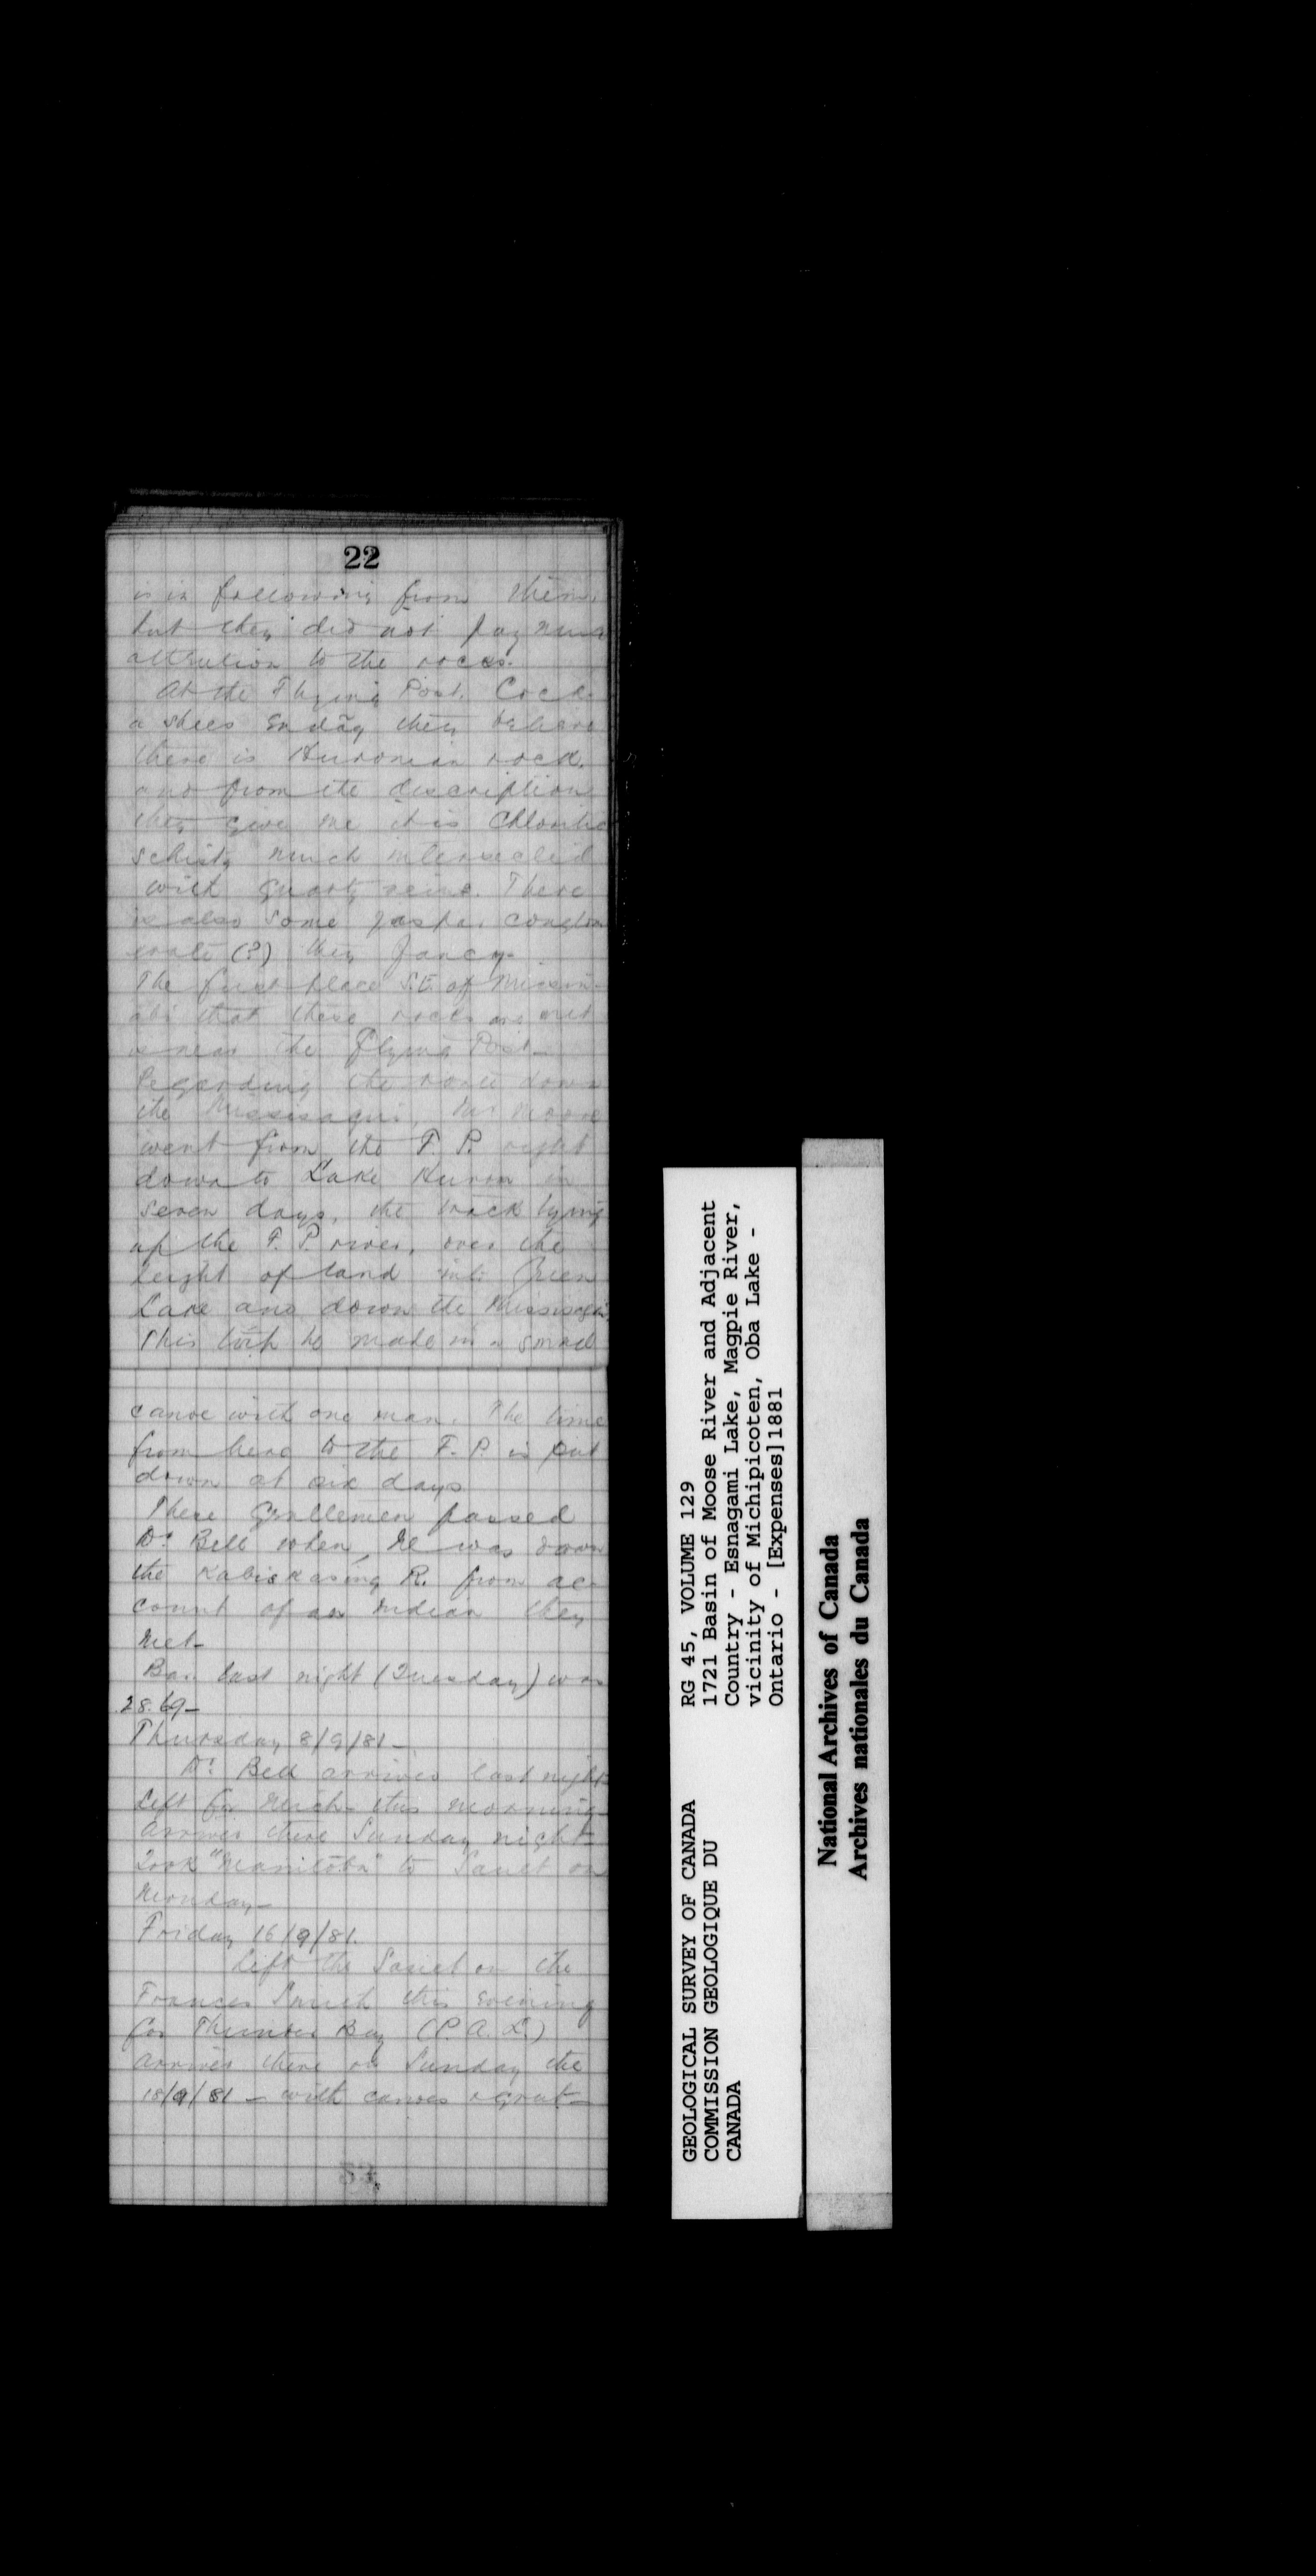 22
is in following from them
but they did not pay much
attention to the rocks.
At the Flying Post.
they believe
there is Huronian rock.
and from the description
they give me it is Chloritic
schists much intersected
with quartz veins. There
is also some jasper conglom
erate (?) they fancy.
The first place S.E. of Missin-
abi that these rocks are met
is near the Flying Post-
Regarding the route down
the Missisaqui, Mr Moore
went from the F. P. right
down to Lake Huron in
seven days, the track lying
up the F. P. river, over the
height of land into Green
Lake and down the Missisaqui
This trip he made in a small
canoe with one man. The time
from here to the F. P. is put
down at six days
These Gentlemen passed
Dr Bell when he was down
the Kabiskasing R. from ac-
count of an Indian they
met-
Bar. last night (Tuesday) was
28.69-
Thursday 8/9/81-
Dr Bell arrived last night
Left for Mich. this morning-
Arrived there Sunday night-
Took "Manitoba" to Sault on
Monday-
Friday 16/9/81.
Left the Sault on the
Frances Smith this evening
for Thunder Bay (P. A. L.)
arrived there on Sunday the
18/9/81 - with canoes
GEOLOGICAL SURVEY OF CANADA
COMMISSION GEOLOGIQUE DU
CANADA
RG 45, VOLUME 129
1721 Basin of Moose River and Adjacent
Country - Esnagami Lake, Magpie River,
vicinity of Michipicoten, Oba Lake -
Ontario - [Expenses]1881
National Archives of Canada
Archives nationales du Canada